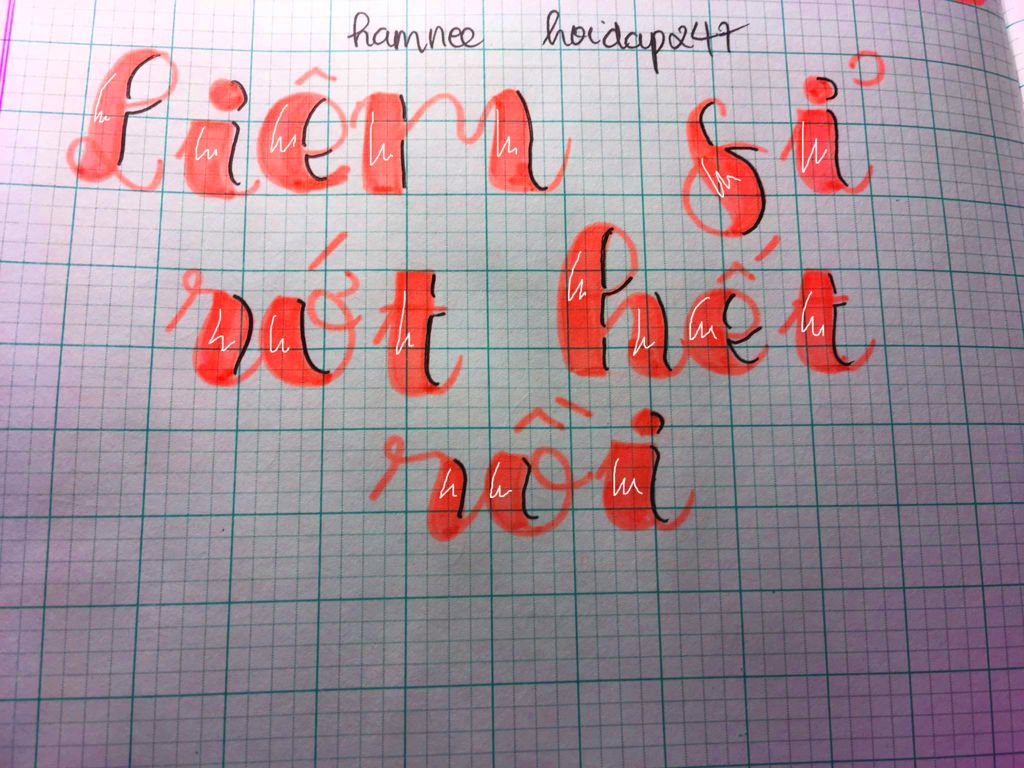 hamnee hoidap247
Liêm sỉ
rớt hết
rồi